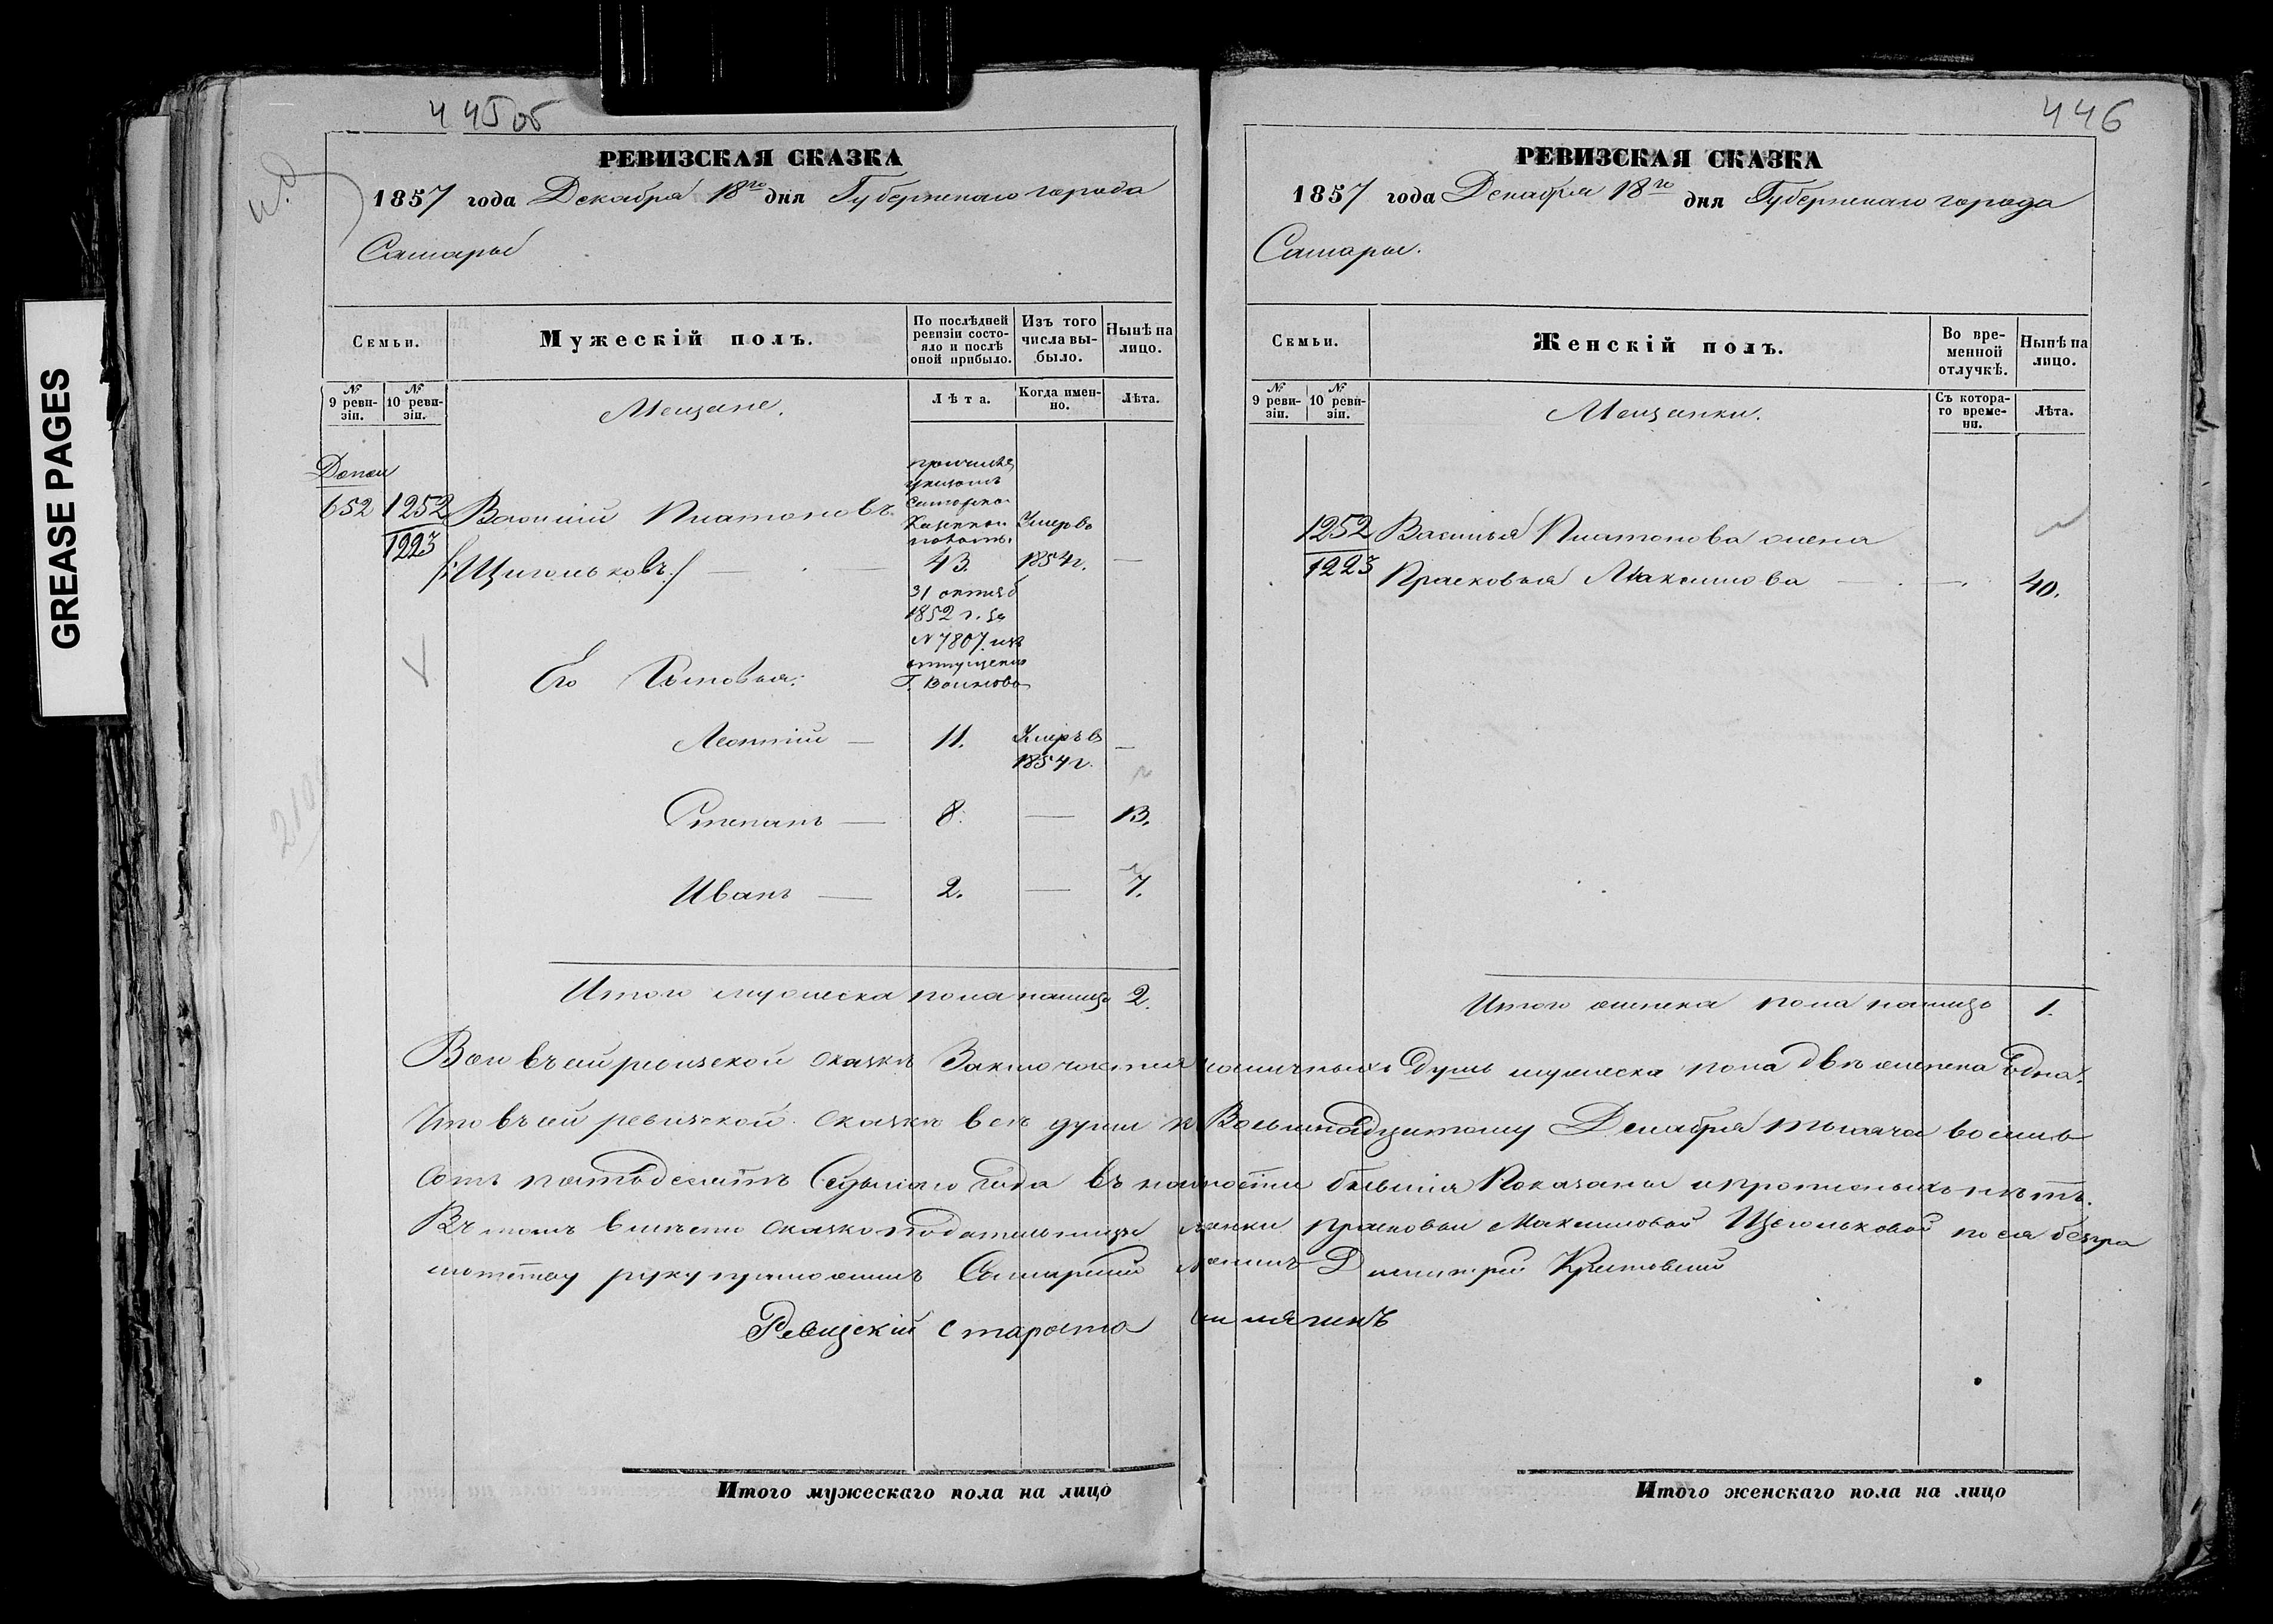 GREASE PAGES
445об
РЕВИЗСКАЯ СКАЗКА
1857 года Декабря 18го дня Губернскаго города
Самары
Семьи.
Мужескій полъ.
По послѣдней ревизіи состояло и послѣ оной прибыло.
Изъ того числа выбыло.
Нынѣ на лицо.
№ 9 ревизіи.
№ 10 ревизіи.
Мещане.
Лѣта.
Когда именно.
Лѣта.
Допол
652 1252 Василий Платоновъ
1223 /:Щегольковъ:/ — 43. Умеръ въ 1854 г. —
причислен
указомъ
Самарской
Казенной
палаты
31 октяб
1852 г. за
N 7807. изъ
отпущеных
Г. Воинова
Его Сыновья:
Леонтий — 11. Умеръ въ 1854 г. —
Степанъ — 8. — 13.
Иванъ — 2. — 7.
Итого мужеска пола налицо 2.
Итого мужескаго пола на лицо
446
РЕВИЗСКАЯ СКАЗКА
1857 года Декабря 18го дня Губернскаго города
Самары.
Семьи.
Женскій полъ.
Во временной отлучкѣ.
Нынѣ на лицо.
№ 9 ревизіи.
№ 10 ревизіи.
Мещанки.
Съ котораго времени.
Лѣта.
1252 Василья Платонова жена
1223 Прасковья Максимова — — 40.
Итого женска пола налицо 1.
Всего въ сей ревизской сказке Заключается наличныхъ душъ мужеска пола двѣ женска одна.
Что въ сей ревизской сказкѣ все души к Восьмнадцатому Декабря тысяча восемь
сотъ пятьдесятъ Седьмаго Года въ налоCти бывшия Показаны и прописныхъ нетъ.
Въ томъ вместо сказкоподательницы мѣнки Прасковьи Максимовой Щегольковой по ея безгра
мотству руку приложилъ Самарский мѣщнъ Дмитрий Крытовский
Ревизскій староста
Итого женскаго пола на лицо